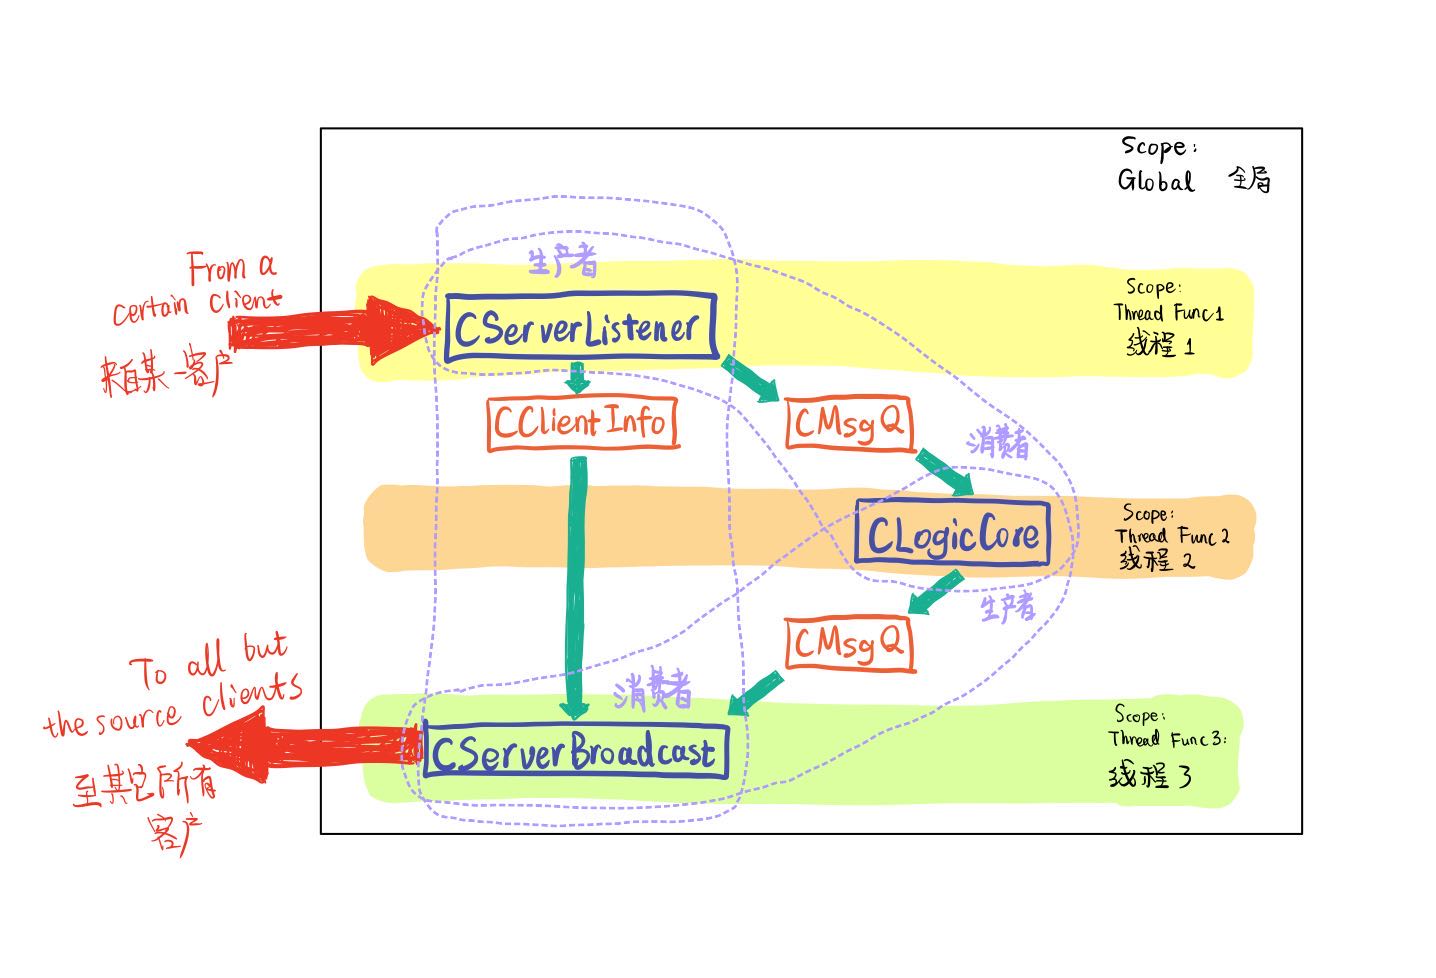 Scope:
Global 全局
生产者
From a
certain client
来自某一客户
CServerListener
Scope:
Thread Func1
线程 1
CClientInfo
CMsgQ
消费者
CLogicCore
Scope:
Thread Func2
线程 2
生产者
CMsgQ
To all but
the source clients
至其它所有
客户
消费者
CServerBroadcast
Scope:
Thread Func3:
线程 3